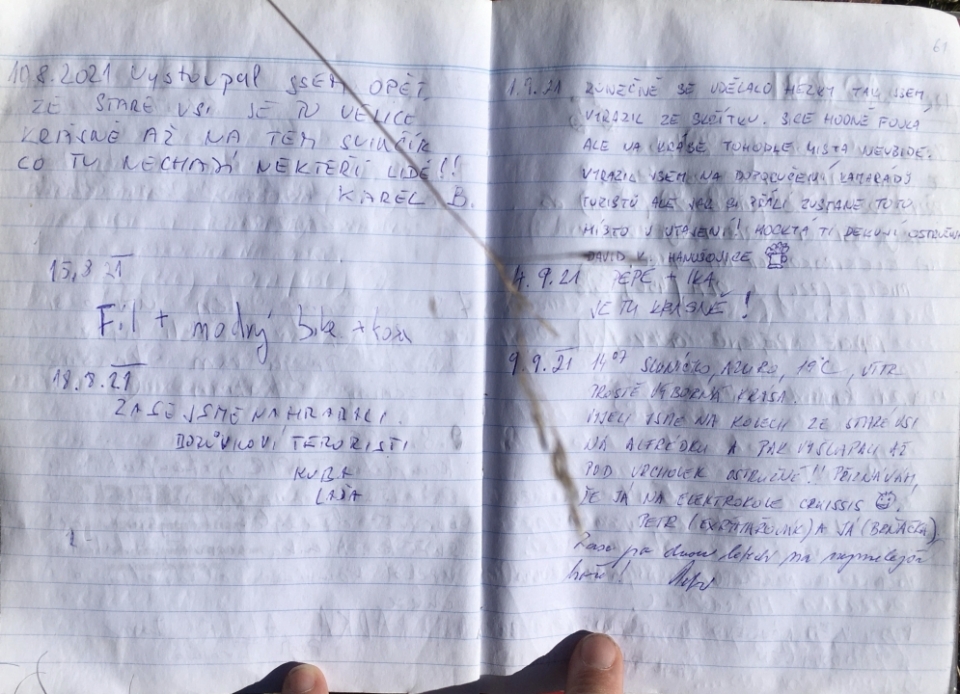 10.8.2021 Vystoupal JSEM OPĚT
ZE STARÉ VSI JE TU VELICE
KRÁSNĚ AŽ NA TEN SVINČÍK
CO TU NECHAJÍ NEKTEŘÍ LIDÉ!!
KAREL B.
15.8 21
Fil + modrý bike +
18.8.21
ZASE JSME NA HRABAČI.
BORŮVKOVÍ TERORISTI
KUBA
LÁĎA
61
1.9.21 KONEČNĚ SE UDĚLALO HEZKY TAK JSEM
VYRAZIL ZE SKŘÍTKU. SICE HODNĚ FOUKÁ
ALE NA KRÁSE TOHODLE MÍSTA NEUBÍDE.
VYRAZIL JSEM NA DOPORUČENÍ KAMARÁDŮ
TURISTŮ ALE JEN SI PŘÁLI ZŮSTANE TOTO
MÍSTO V UTAJENÍ! MOCKRÁT TI DĚKUJI OSTRUŽNÁ
DAVID K. HANUŠOVICE
4.9.21 PÉPÉ + IKA
JE TU KRÁSNĚ!
9.9.21 14⁰⁷ SLUNÍČKO, AZURO, 19°C, VÍTR
PROSTĚ VÝBORNÁ KRÁSA.
VYJELI JSME NA KOLECH ZE STARÉ VSI
NA ALFRÉDKU A PAK VYŠLAPALI AŽ
POD VRCHOLEK OSTRUŽNÉ!! PŘIZNÁVÁM,
ŽE JÁ NA ELEKTROKOLE CRUSSIS
PETR A JÁ
Zase po dvou letech na nejmilejší